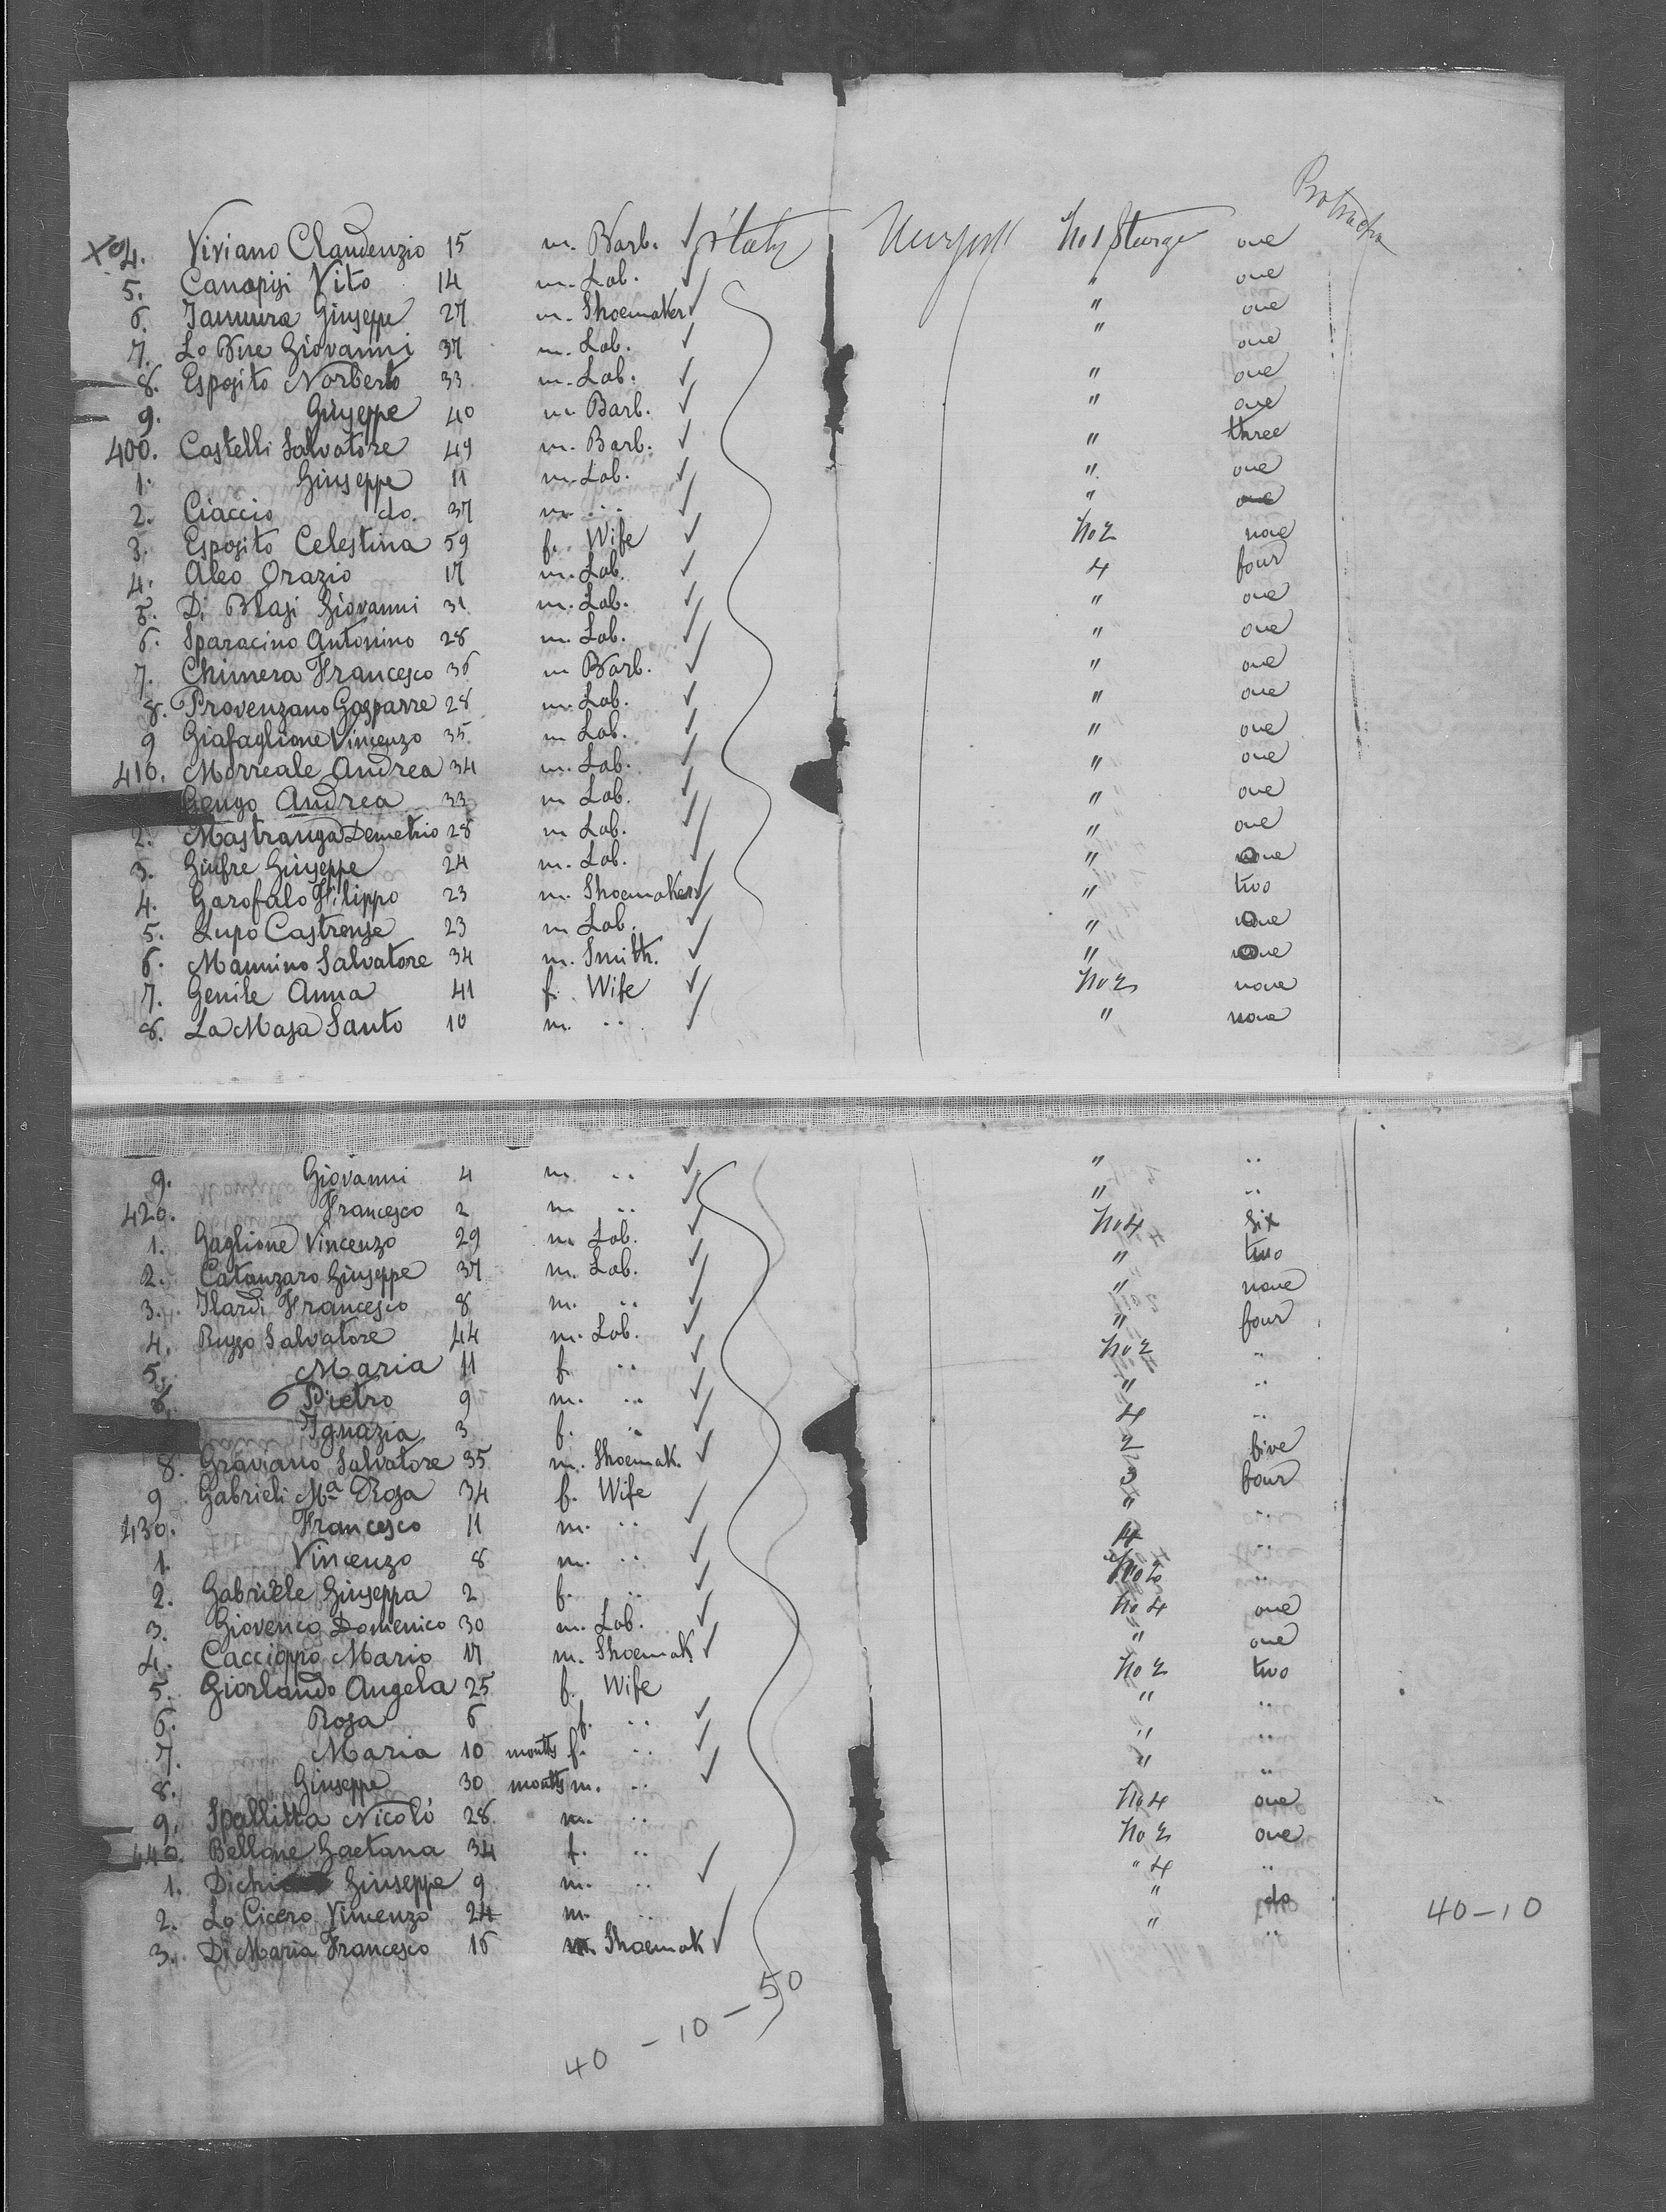 Protracted
X94. Viviano Claudenzio 15 m. Barb. ✓ Italy Newyork No 1 Steerage one
5. Canapisi Vito 14 m. Lab. ✓ " one
6. Iammura Giuseppe 27 m. Shoemaker ✓ " one
7. Lo Bue Giovanni 37 m. Lab. ✓ " one
8. Esposito Norberto 33 m. Lab. ✓ " one
9. Giuseppe 40 m Barb. ✓ " one
400. Castelli Salvatore 49 m. Barb. ✓ " three
1. Giuseppe 11 m. Lab. ✓ " one
2. Ciaccio do. 37 m. .. ✓ " one
3. Esposito Celestina 59 f. Wife ✓ No 2 none
4. Aleo Orazio 17 m. Lab. ✓ 4 four
5. Di Blasi Giovanni 31 m. Lab. ✓ " one
6. Sparacino Antonino 28 m. Lab. ✓ " one
7. Chimera Francesco 36 m Barb. ✓ " one
8. Provenzano Gasparre 28 m. Lab. ✓ " one
9 Giafaglione Vincenzo 35 m Lab. ✓ " one
410. Morreale Andrea 34 m. Lab. ✓ " one
Gengo Andrea 33 m Lab. ✓ " one
2. Mastranga Demetrio 28 m Lab. ✓ " one
3. Giufre Giuseppe 24 m. Lab. ✓ " none
4. Garofalo Filippo 23 m. Shoemaker ✓ " two
5. Lupo Castrense 23 m Lab. ✓ " none
6. Mannino Salvatore 34 m. Smith. ✓ " none
7. Genile Anna 41 f. Wife ✓ No 2 none
8. La Masa Santo 10 m. .. ✓ " none
9. Giovanni 4 m. .. ✓ " ..
420. Francesco 2 m .. ✓ " ..
1. Gaglione Vincenzo 29 m Lab. ✓ No 4 six
2. Catanzaro Giuseppe 37 m. Lab. ✓ " two
3. Ilardi Francesco 8 m. .. ✓ " none
4. Russo Salvatore 44 m. Lab. ✓ " four
5. Maria 11 f. .. ✓ No 2 ..
6. Pietro 9 m. .. ✓ " ..
Ignazia 3 f. .. ✓ 4 ..
8. Graviano Salvatore 35 m. Shoemak. ✓ 2 five
9 Gabrieli Ma Rosa 34 f. Wife 3 four
430. Francesco 11 m. .. ✓ " ..
1. Vincenzo 8 m. .. ✓ 4 ..
2. Gabriele Giuseppa 2 f. .. ✓ No 2 ..
3. Giovenco Domenico 30 m. Lab. ✓ No 4 one
4. Caccioppo Mario 17 m. Shoemak. ✓ " one
5. Giorlando Angela 25 f. Wife No 2 two
6. Rosa 6 f. .. ✓ " ..
7. Maria 10 months f. .. ✓ " ..
8. Giuseppe 30 months m. .. ✓ " ..
9. Spallitta Nicolò 28 m. .. No 4 one
440. Bellone Gaetana 34 f. .. No 2 one
1. Giuseppe 9 m. .. ✓ " 4 ..
2. Lo Cicero Vincenzo 24 m. .. " do
3. Di Maria Francesco 16 m. Shoemak ✓ " ..
40-10
40 - 10 - 50